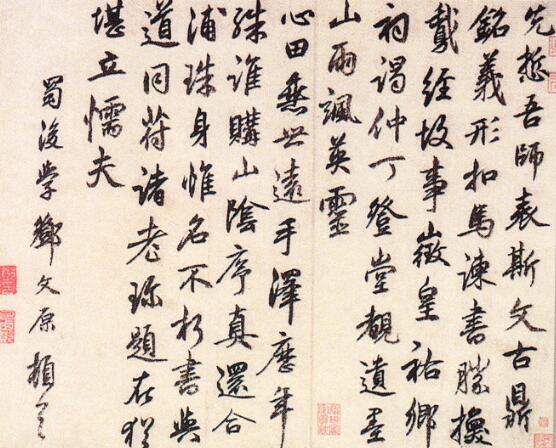 先哲吾師表斯文古鼎
銘義形扣馬諫書勝換
鵞經故事徵皇祐鄉
祠謁仲丁登堂覩遺墨
山雨颯英靈
心田無世遠手澤歷年
殊誰購山陰序真還合
浦珠身惟名不朽書與
道同符諸老珎題在猶
堪立懦夫
蜀後學鄧文原頓首